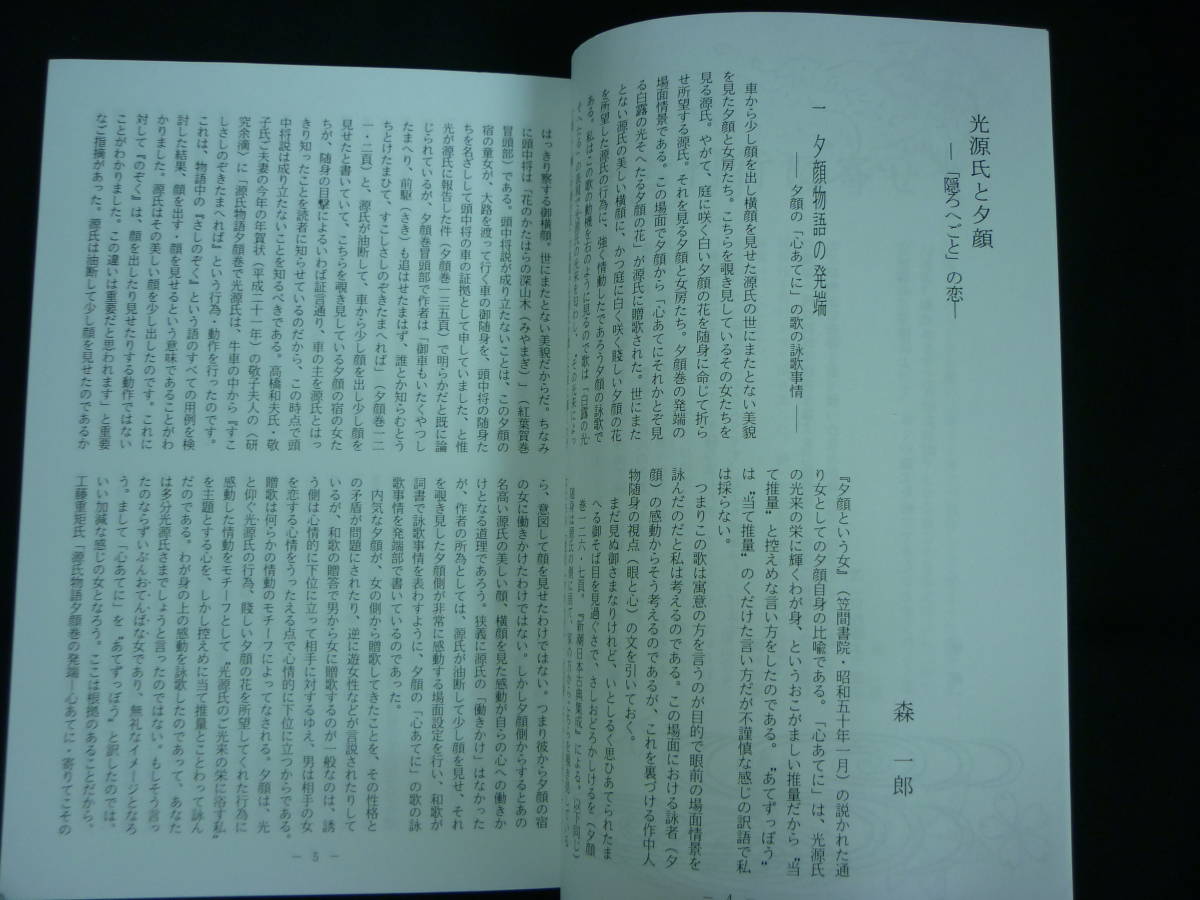 光源氏と夕顔
―「隠ろへごと」の恋―
森一郎
一 夕顔物語の発端
―― 夕顔の「心あてに」の歌の詠歌事情 ――
車から少し顔を出し横顔を見せた源氏の世にまたとない美貌
を見た夕顔と女房たち。こちらを覗き見しているその女たちを
見る源氏。やがて、庭に咲く白い夕顔の花を随身に命じて折ら
せ所望する源氏。それを見る夕顔と女房たち。夕顔巻の発端の
場面情景である。この場面で夕顔から「心あてにそれかとぞ見
る白露の光そへたる夕顔の花」が源氏に贈歌された。世にまた
とない源氏の美しい横顔に、かつ庭に白く咲く賤しい夕顔の花
を所望した源氏の行為に、強く情動したであろう夕顔の詠歌で
ある。私はこの歌の動機を右のように見るので歌は「白露の光
『夕顔という女』(笠間書院・昭和五十年一月)の説かれた通
り女としての夕顔自身の比喩である。「心あてに」は、光源氏
の光来の栄に輝くわが身、というおこがましい推量だから〝当
て推量〟と控えめな言い方をしたのである。〝あてずっぽう〟
は〝当て推量〟のくだけた言い方だが不謹慎な感じの訳語で私
は採らない。
つまりこの歌は寓意の方を言うのが目的で眼前の場面情景を
詠んだのだと私は考えるのである。この場面における詠者(夕
顔)の感動からそう考えるのであるが、これを裏づける作中人
物随身の視点(眼と心)の文を引いておく。
まだ見ぬ御さまなりけれど、いとしるく思ひあてられたま
へる御そば目を見過ぐさで、さしおどろかしけるを(夕顔
巻一二六・七頁。『新潮日本古典集成』による。以下同じ)
4
はっきり察する御横顔。世にまたとない美貌だからだ。ちなみ
に頭中将は「花のかたはらの深山木(みやまぎ)」(紅葉賀巻
冒頭部)である。頭中将説が成り立たないことは、この夕顔の
宿の童女が、大路を渡って行く車の御随身を、頭中将の随身た
ちを名ざしして頭中将の車の証拠として申していました、と惟
光が源氏に報告した件(夕顔巻一三五頁)で明らかだと既に論
じられているが、夕顔巻冒頭部で作者は「御車もいたくやつし
たまへり、前駆(さき)も追はせたまはず、誰とか知らむとう
ちとけたまひて、すこしさしのぞきたまへれば」(夕顔巻一二
一・二頁)と、源氏が油断して、車から少し顔を出し少し顔を
見せたと書いていて、こちらを覗き見している夕顔の宿の女た
ちが、随身の目撃によるいわば証言通り、車の主を源氏とはっ
きり知ったことを読者に知らせているのだから、この時点で頭
中将説は成り立たないことを知るべきである。高橋和夫氏・敬
子氏ご夫妻の今年の年賀状(平成二十一年)の敬子夫人の(研
究余滴)に「源氏物語夕顔巻で光源氏は、牛車の中から『すこ
しさしのぞきたまへれば』という行為・動作を行ったのです。
これは、物語中の『さしのぞく』という語のすべての用例を検
討した結果、顔を出す・顔を見せるという意味であることがわ
かりました。源氏はその美しい顔を少し出したのです。これに
対して『のぞく』は、顔を出したり見せたりする動作ではない
ことがわかりました。この違いは重要だと思われます」と重要
なご指摘があった。源氏は油断して少し顔を見せたのであるか
ら、意図して顔を見せたわけではない。つまり彼から夕顔の宿
の女に働きかけたわけではない。しかし夕顔側からするとあの
名高い源氏の美しい顔、横顔を見た感動が自らの心への働きか
けとなる道理であろう。狭義に源氏の「働きかけ」はなかった
が、作者の所為としては、源氏が油断して少し顔を見せ、それ
を覗き見した夕顔側が非常に感動する場面設定を行い、和歌が
詞書で詠歌事情を表わすように、夕顔の「心あてに」の歌の詠
歌事情を発端部で書いているのであった。
内気な夕顔が、女の側から贈歌してきたことを、その性格と
の矛盾が問題にされたり、逆に遊女性などが言説されたりして
いるが、和歌の贈答で男から女に贈歌するのが一般なのは、誘
う側は心情的に下位に立って相手に対するゆえ、男は相手の女
を恋する心情をうったえる点で心情的に下位に立つからである。
贈歌は何らかの情動のモチーフによってなされる。夕顔は、光
と仰ぐ光源氏の行為、賤しい夕顔の花を所望してくれた行為に
感動した情動をモチーフとして〝光源氏のご光来の栄に浴す私〟
を主題とする心を、しかし控えめに当て推量とことわって詠ん
だのである。わが身の上の感動を詠歌したのであって、あなた
は多分光源氏さまでしょうと言ったのではない。もしそう言っ
たのならずいぶんおてんばな女であり、無礼なイメージとなろ
う。まして「心あてに」を〝あてずっぽう〟と訳したのでは、
いい加減な感じの女となろう。ここは根拠のあることだから、
工藤重矩氏「源氏物語夕顔巻の発端―心あてに・寄りてこその
― 5 ―